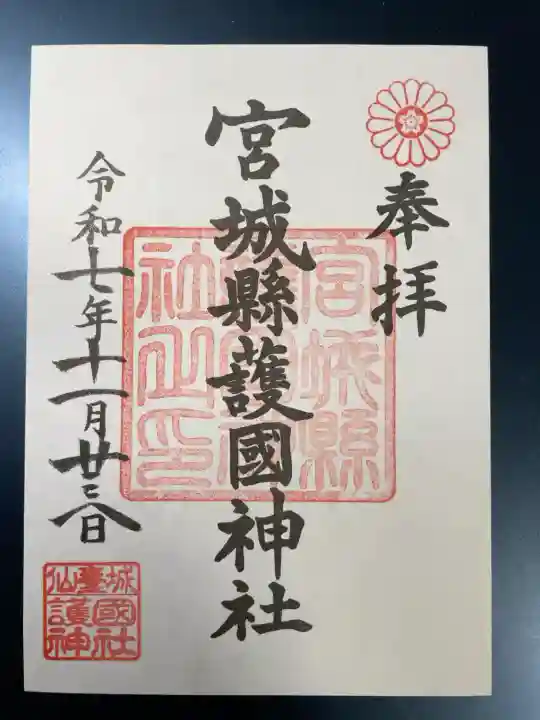 奉拝
宮城縣護國神社
宮城縣護國神社之印
令和七年十一月廿三日
仙臺城
護國神社